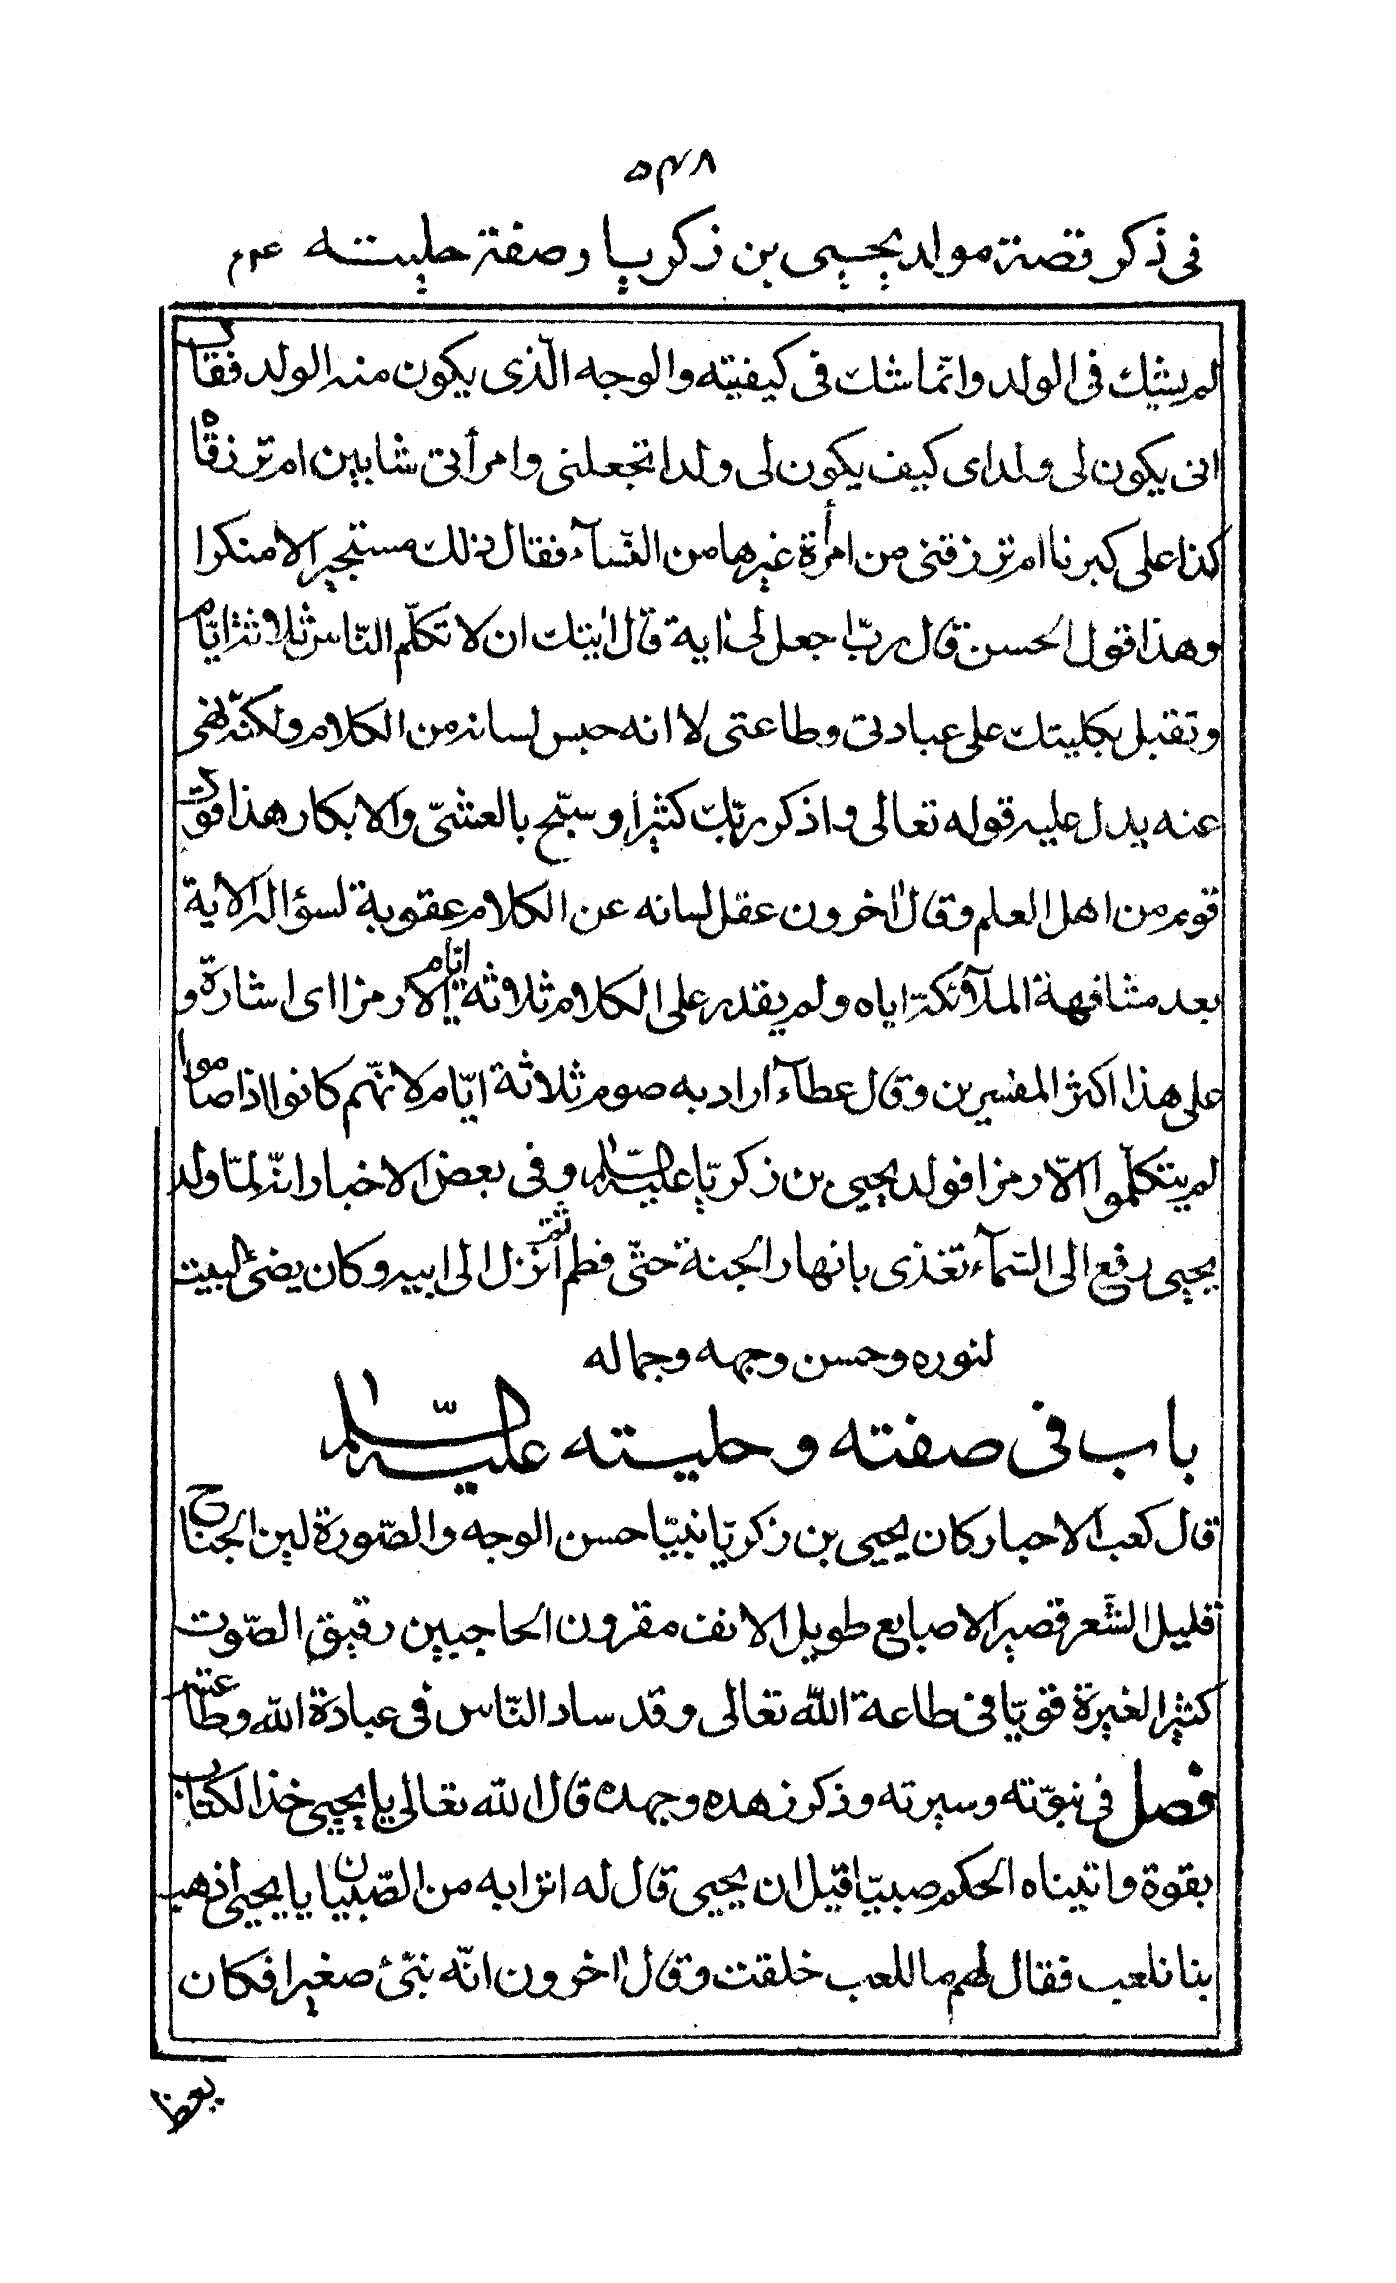 ٥٤٨
فى ذكر قصة مولد يحيى بن زكريا وصفة حليته ع م
لم يشك فى الولد وانّما شك فى كيفيته والوجه الّذى يكون منه الولد فقال
انى يكون لى ولد اى كيف يكون لى ولد اتجعلنى وامرأتى شابين ام ترزقنا
كذا على كبرنا ام ترزقنى من امرأة غيرها من النّسآء فقال ذلك مستجيرا لا منكرا
وهذا قول الحسن قال ربّ اجعل لى اٰية قال اٰيتك ان لا تكلّم النّاس ثلاثة ايّام
وتقبل بكليتك على عبادتى وطاعتى لا انه حبس لسانه من الكلام ولكنّه نهى
عنه يدل عليه قوله تعالى واذكر ربّك كثيرا وسبّح بالعشىّ والابكار هذا قول
قوم من اهل العلم وقال اٰخرون عقل لسانه عن الكلام عقوبة لسؤاله الاٰية
بعد مشافهة الملآئكة اياه ولم يقدر على الكلام ثلاثة ايّام الا رمزا اى اشارة و
على هذا اكثر المفسرين وقال عطآء اراد به صوم ثلاثة ايّام لانّهم كانوا اذا صاموا
لم يتكلّموا الّا رمزا فولد يحيى بن زكريّا عليه السّلام وفى بعض الاخبار انّه لمّا ولد
يحيى رفع الى السّمآء تغذى بانهار الجنة حتّى فطم ثم انزل الى ابيه وكان يضئ البيت
لنوره وحسن وجهه وجماله
باب فى صفته وحليته عليه السّلام
قال كعب الاحبار كان يحيى بن زكريّا نبيّا حسن الوجه والصّورة لين الجناح
قليل الشّعر قصير الاصابع طويل الانف مقرون الحاجبين رقيق الصّوت
كثير الغيرة قويّا فى طاعة اللّه تعالى وقد ساد النّاس فى عبادة اللّه وطاعته
فصل فى نبوّته وسيرته وذكر زهده وجهده قال اللّه تعالى يا يحيى خذ الكتاب
بقوة واتيناه الحكم صبيّا قيل ان يحيى قال له اترابه من الصّبيان يا يحيى اذهب
بنا نلعب فقال لهم ما للعب خلقت وقال اٰخرون انّه نبّئ صغيرا فكان
يعظ